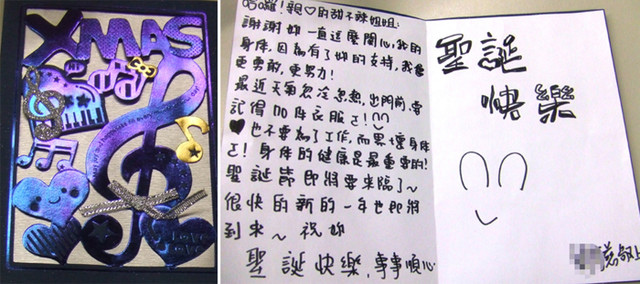 XMAS
哈囉！親♥的甜不辣姐姐：
謝謝妳一直這麼關心我的
身体，因為有了妳的支持，我會
更勇敢，更努力！
最近天氣忽冷忽熱，出門前要
記得加件衣服ㄛ！
♥也不要為了工作，而累壞身体
ㄛ！身体的健康是最重要的！
聖誕節即將要來臨了～
很快的新的一年也即將
到來～祝妳
聖誕快樂，事事順心
聖誕
快樂
敬上